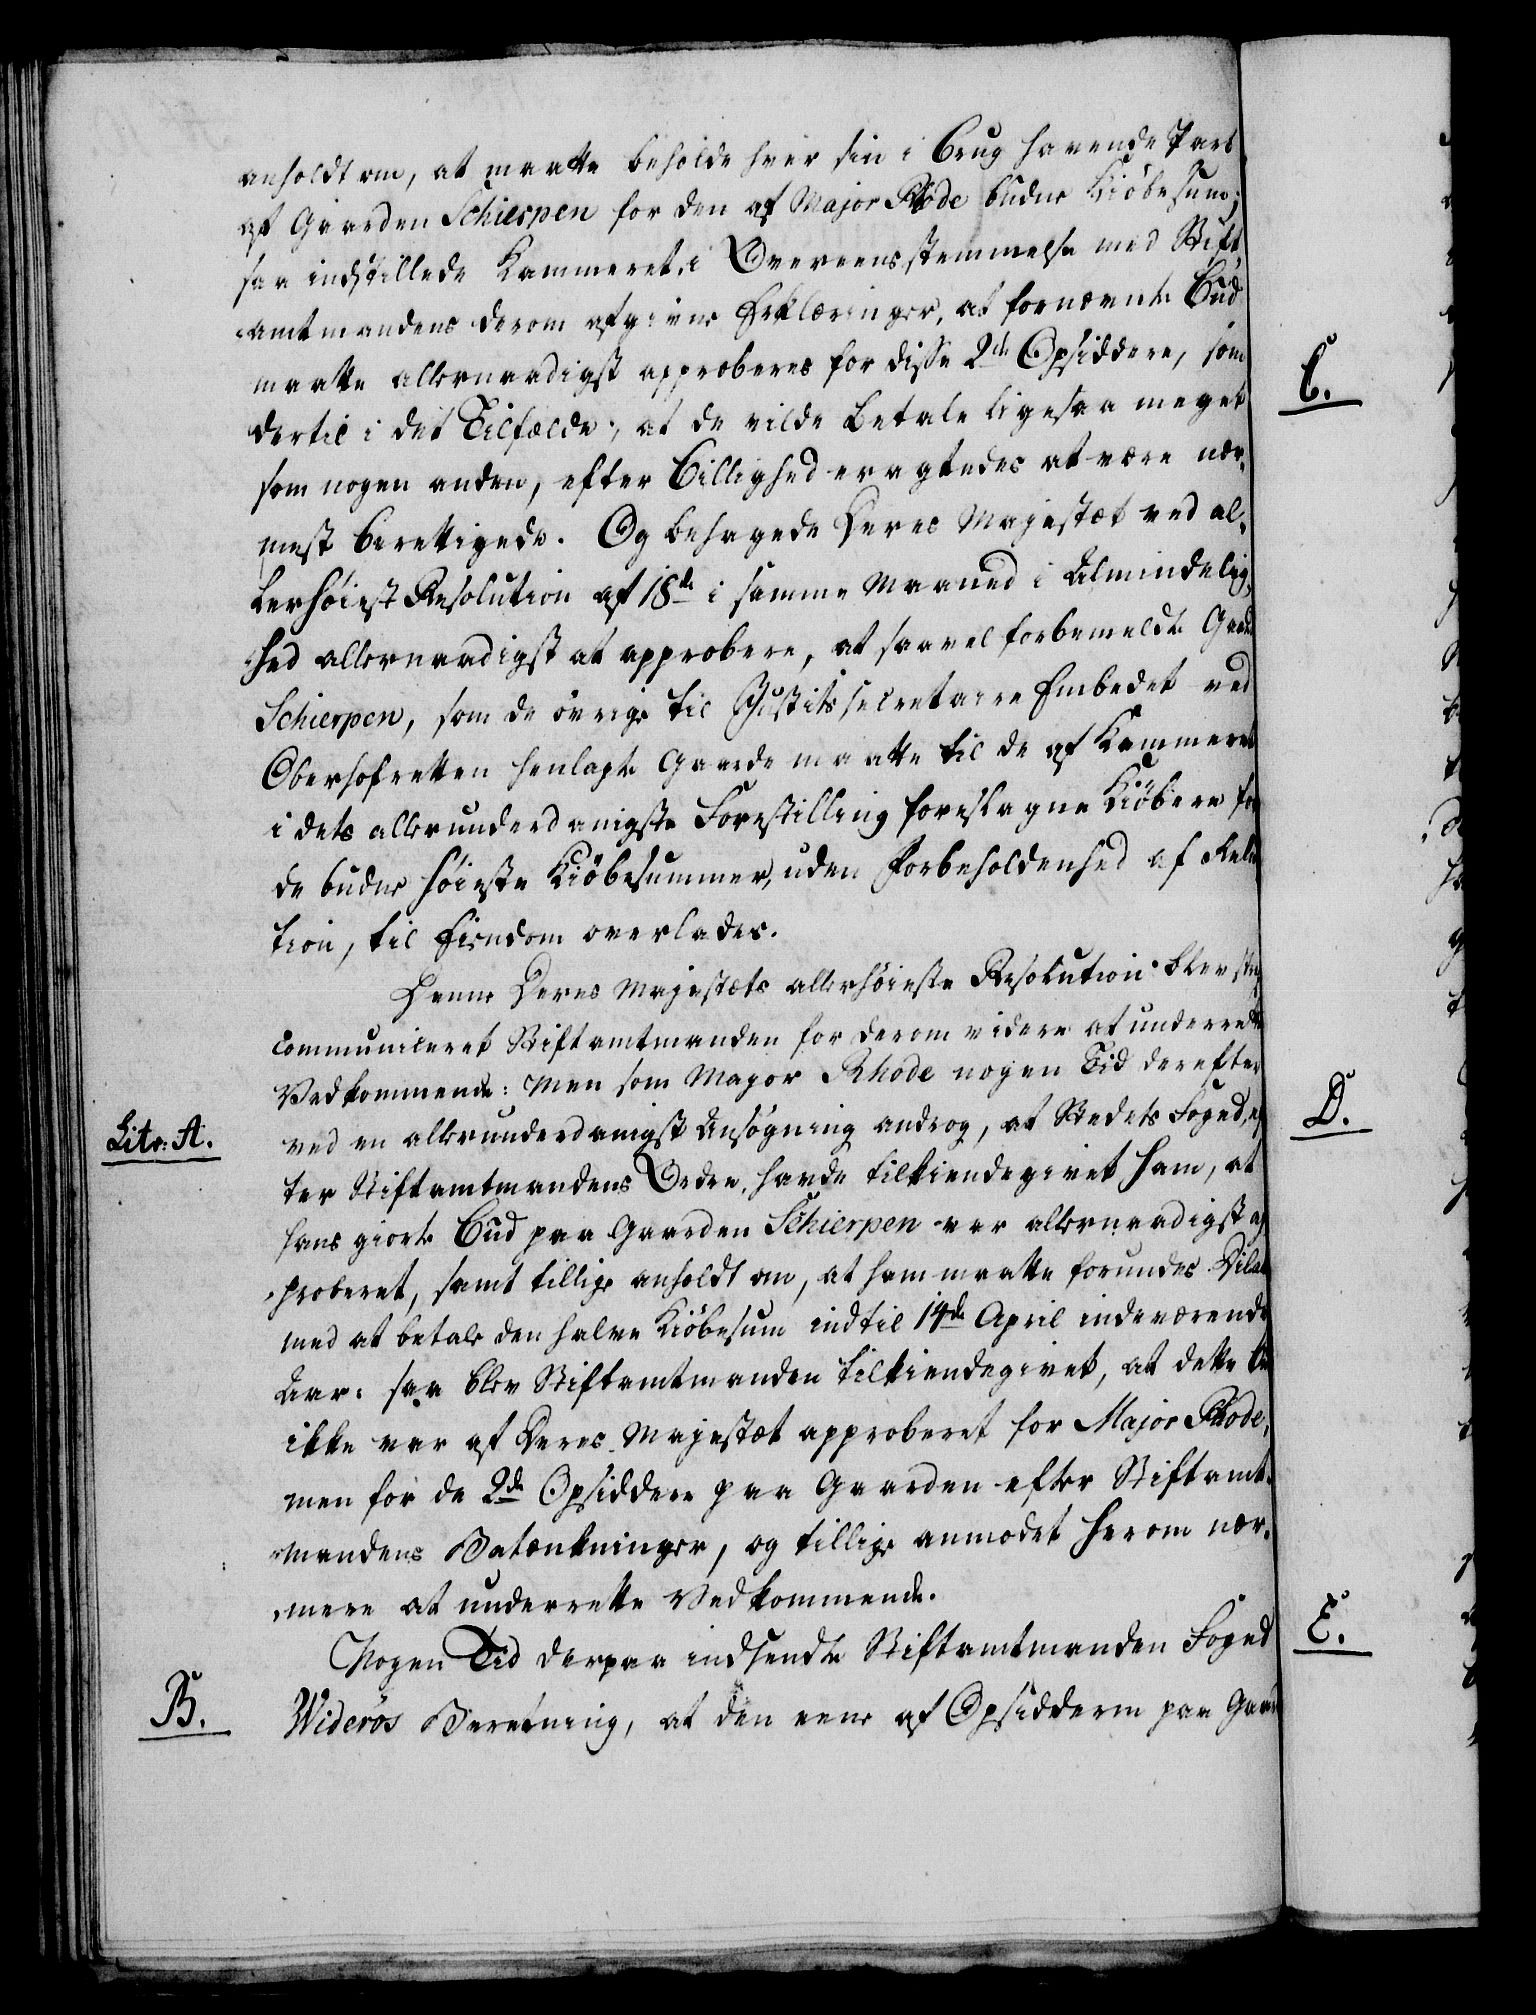 anholdt om, at maatte beholde hver sin i Brug havende Part
af Gaarden Schierpen for den af Major Rhode budne Kiöbesum;
saa indstillede Kammeret, i Overeensstemmelse med Stift-
amtmandens derom afgivne Erklæringer, at fornævnte Bud
maatte allernaadigst approberes for disse 2de Opsiddere, som
dertil i det Tilfælde, at de vilde betale ligesaa meget
som nogen anden, efter Billighed eragtedes at være nær-
mest berettigede. Og behagede Deres Majestæt ved al-
lerhöiest Resolution af 18de i samme Maaned i Almindelig-
hed allernaadigst at approbere, at saavel forbemeldte Gaard
Schierpen, som de övrige til Justitssecretaire Embedet ved
Oberhofretten henlagte Gaarde maatte til de af Kammeret
i dets allerunderdanigste Forestilling foreslagne Kiöbere for
de budne höieste Kiöbesummer, uden Forbeholdenhed af Relui-
tion, til Eiendom overlades.
Denne Deres Majestæts allerhöieste Resolution blev strax
communiceret Stiftamtmanden for derom videre at underrette
Vedkommende: Men som Major Rhode nogen Tid derefter
Litr: A.
ved en allerunderdanigst Ansögning androg, at Stedets Foged, ef-
ter Stiftamtmandens Ordre, havde tilkiendegivet ham, at
hans giorte Bud paa Gaarden Schierpen var allernaadigst ap-
proberet, samt tillige anholdt om, at ham maatte forundes Dilat
med at betale den halve Kiöbesum indtil 14de April indeværende
Aar: saa blev Stiftamtmanden tilkiendegivet, at dette Bud
ikke var af Deres Majestæt approberet for Major Rhode,
men for de 2de Opsiddere paa Gaarden efter Stiftamt-
mandens Betænkninger, og tillige anmodet herom nær-
mere at underrette Vedkommende.
Nogen Tid derpaa indsendte Stiftamtmanden Foged
B.
Wideröes Beretning, at den eene af Opsidderne paa Gaard
C.
D.
E.